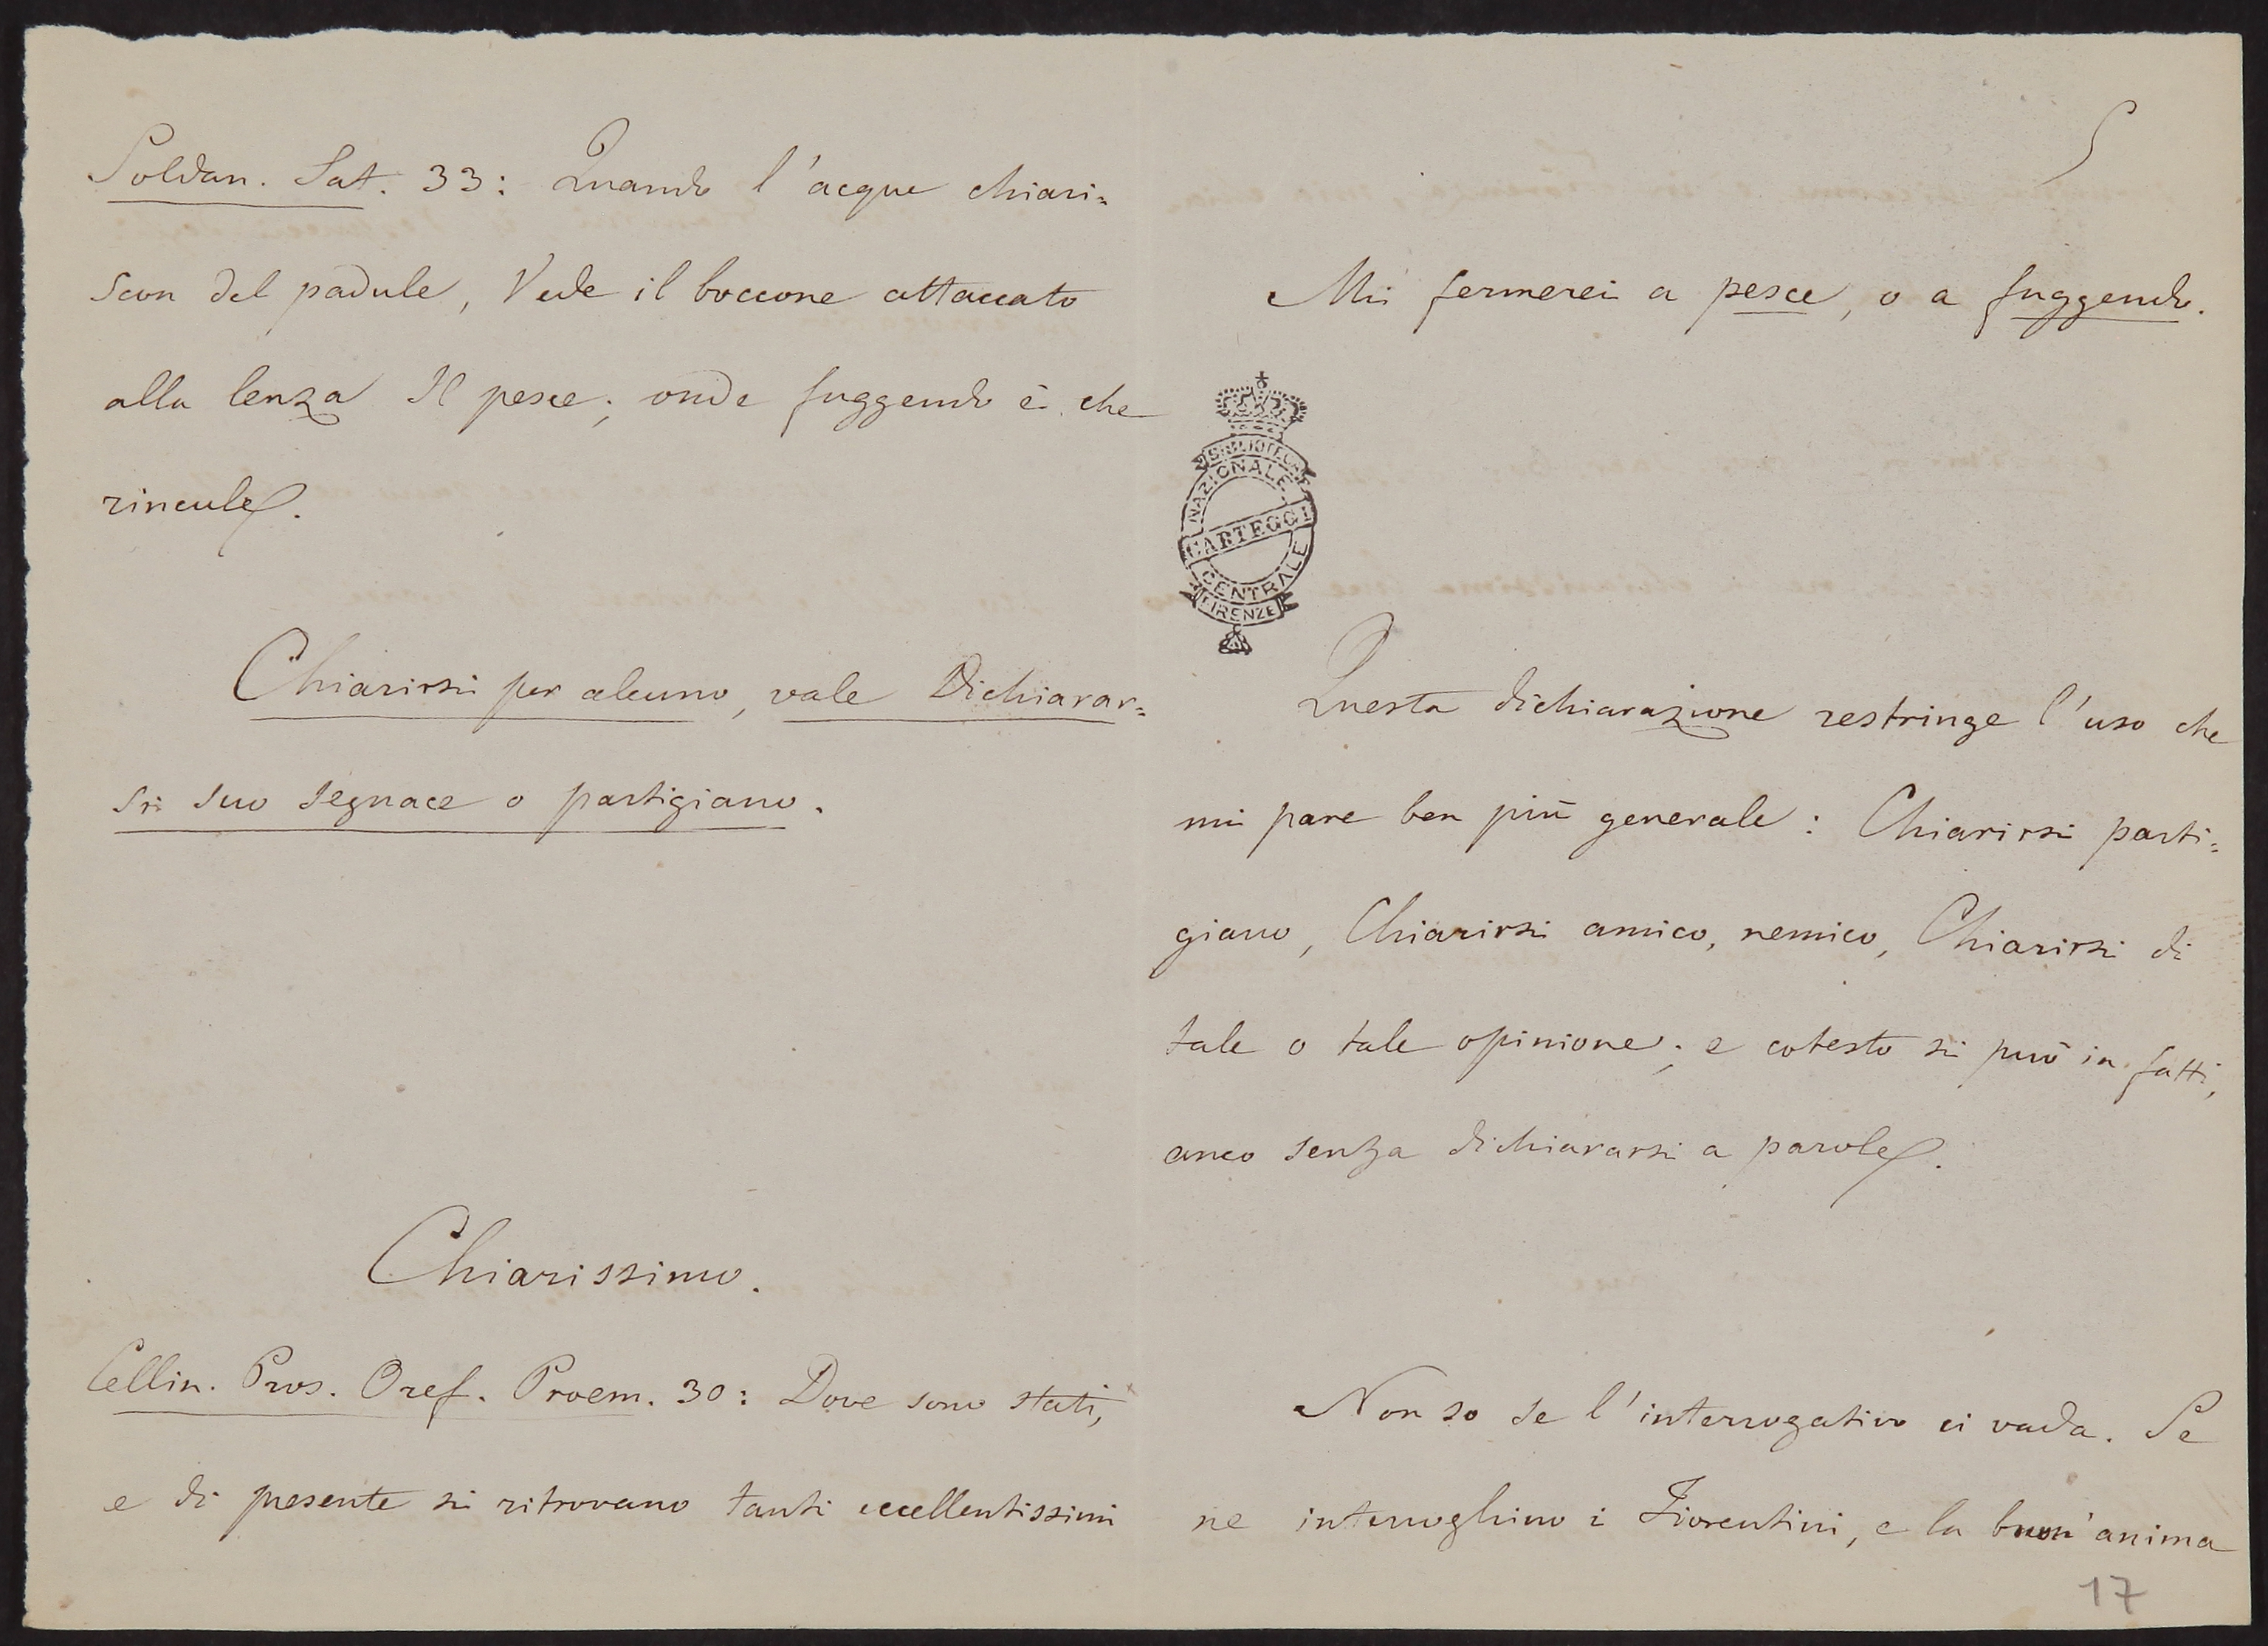 Soldan. Sat. 33: Quando l'acque chiari=
scon del padule, Vede il boccone attaccato
alla lenza Il pesce; onde fuggendo è che
rincule.
Chiarirsi per alcuno, vale Dichiarar=
si suo segnace o partigiano.
Chiarissimo.
Cellin. Pros. Oref. Proem. 30: Dove sono stati,
e di presente si ritrovano tanti eccellentissimi
5
Mi fermerei a pesce, o a fuggendo.
BIBLIOTECA
NAZIONALE
CARTEGGI
CENTRALE
FIRENZE
Questa dichiarazione restringe l'uso che
mi pare ben più generale: Chiarirsi parti=
giano, Chiarirsi amico, nemico, Chiarirsi di
tale o tale opinione; e cotesto si può in fatti,
anco senza dichiararsi a parole.
Non so se l'interrogativo ci vada. Se
ne interroghino i Fiorentini, e la buon'anima
17